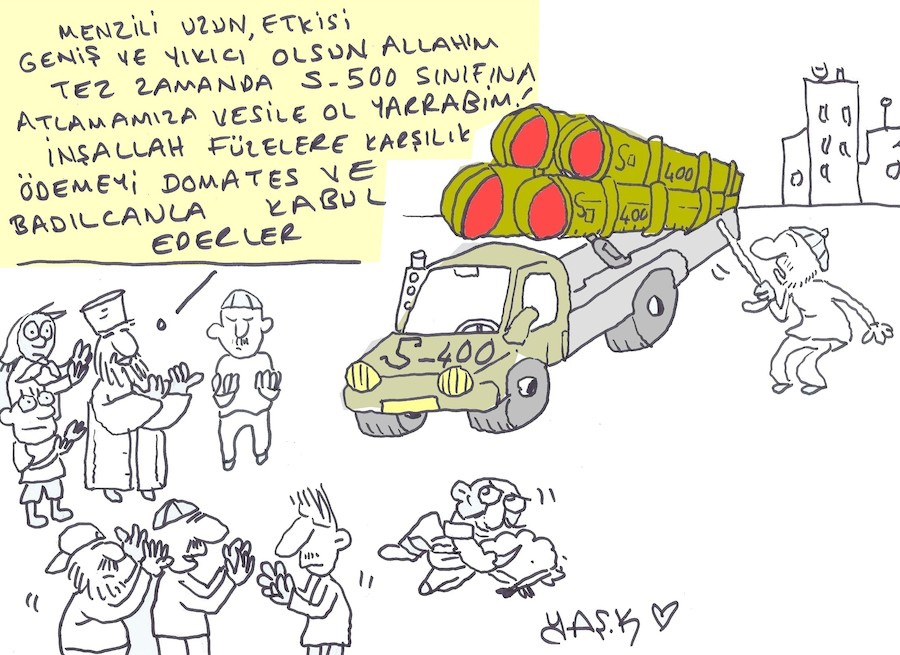 MENZİLİ UZUN, ETKİSİ
GENİŞ VE YIKICI OLSUN ALLAHIM
TEZ ZAMANDA S-500 SINIFINA
ATLAMAMIZA VESİLE OL YARRABİM!
İNŞALLAH FÜZELERE KARŞILIK
ÖDEMEYİ DOMATES VE
BADILCANLA KABUL
EDERLER
400
400
S-400
YAŞ.K